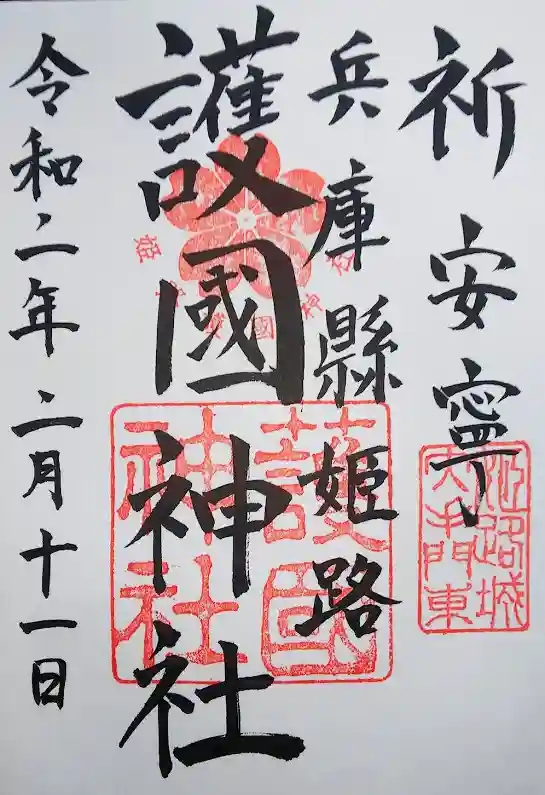 祈安寧
兵庫縣姫路
護國神社
令和二年二月十一日
姫路城
大手門東
護國
神社